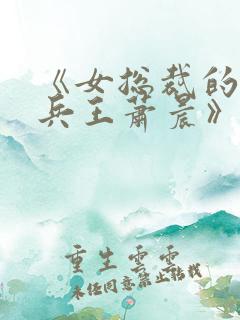 《女总裁的
兵王萧晨》
重生云云
未经同意禁止转载